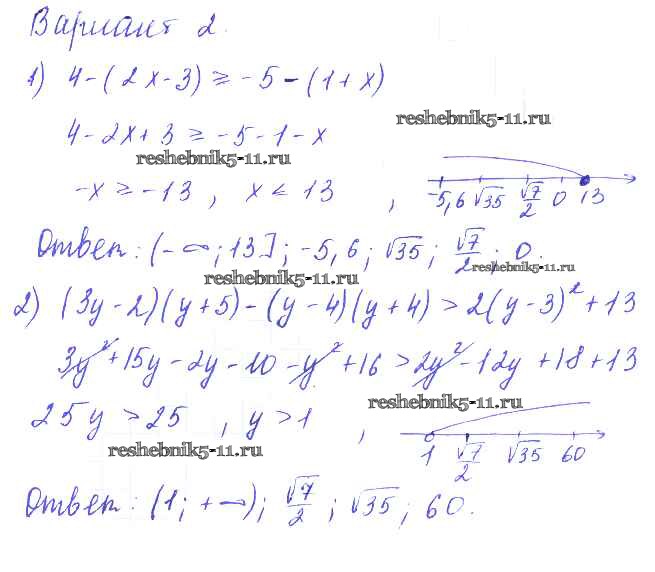 Вариант 2.
1) 4-(2x-3) ≥ -5-(1+x)
reshebnik5-11.ru
4-2x+3 ≥ -5-1-x
reshebnik5-11.ru
-x ≥ -13 , x ≤ 13 ,
-5,6 √35 √7/2 0 13
Ответ: (-∞; 13]; -5,6; √35; √7/2; 0.
reshebnik5-11.ru
reshebnik5-11.ru
2) (3y-2)(y+5)-(y-4)(y+4) > 2(y-3)²+13
3y²+15y-2y-10-y²+16 > 2y²-12y+18+13
reshebnik5-11.ru
25y > 25 , y > 1 ,
reshebnik5-11.ru
1 √7/2 √35 60
Ответ: (1; +∞); √7/2; √35; 60.